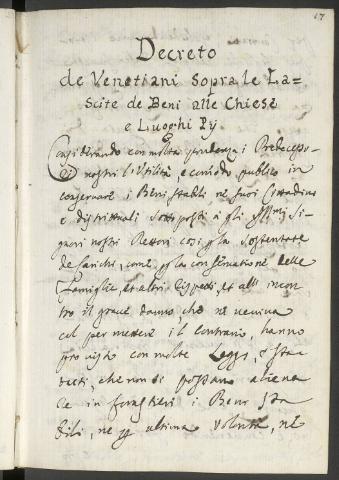 17
Decreto
de Venetiani sopra le La=
scite de Beni alle Chiese
e Luoghi Pij
Considerando con molta prudenza i Predeceso-
ri nostri l'utilità, e comodo publico in
conservare i Beni stabili ne suoi Cittadini
e distrittuali sottoposti à gli Ill.mi Si-
gnori nostri Rettori così p la sostentat.e
de carichi, come p la conservatione delle
famiglie, et altri rispetti, et all' incon
tro il grave danno, che ne veniva
col permettere il contrario, hanno
provisto con molte Leggi, e sta
tuti, che non si possano aliena
re in forastieri i Beni sta
bili, ne p ultima volontà, nè